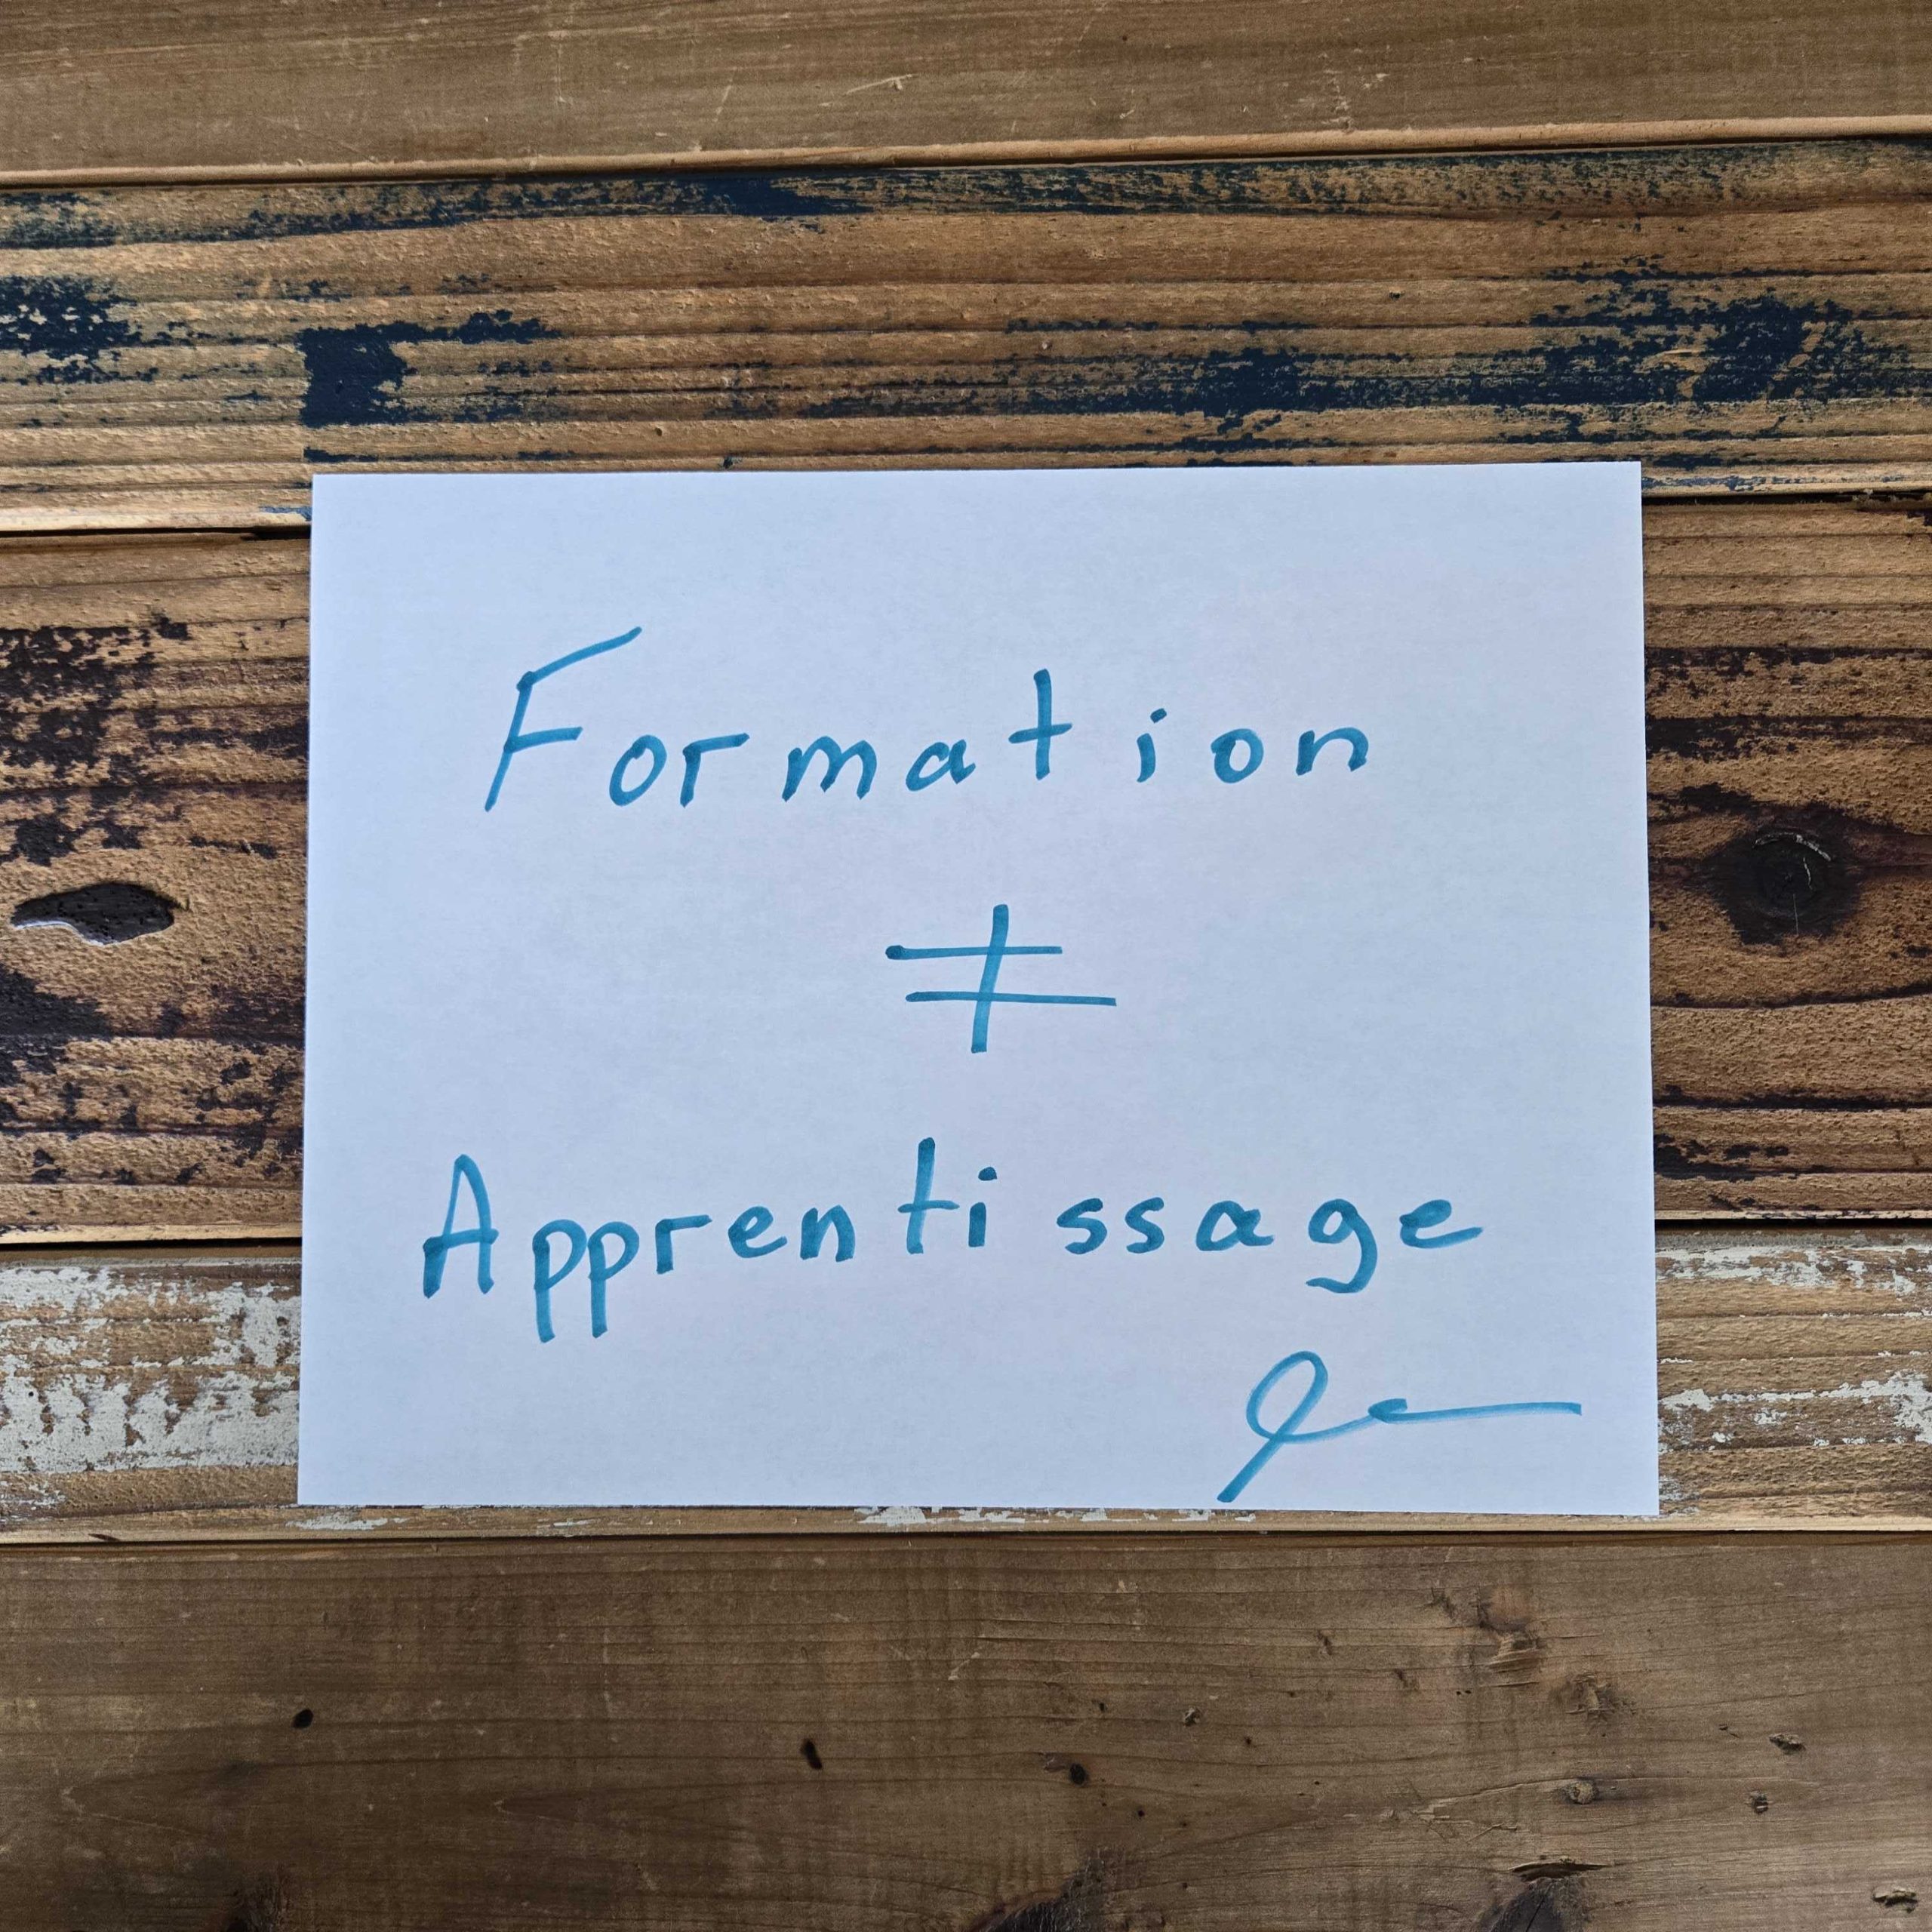 Formation
≠
Apprentissage